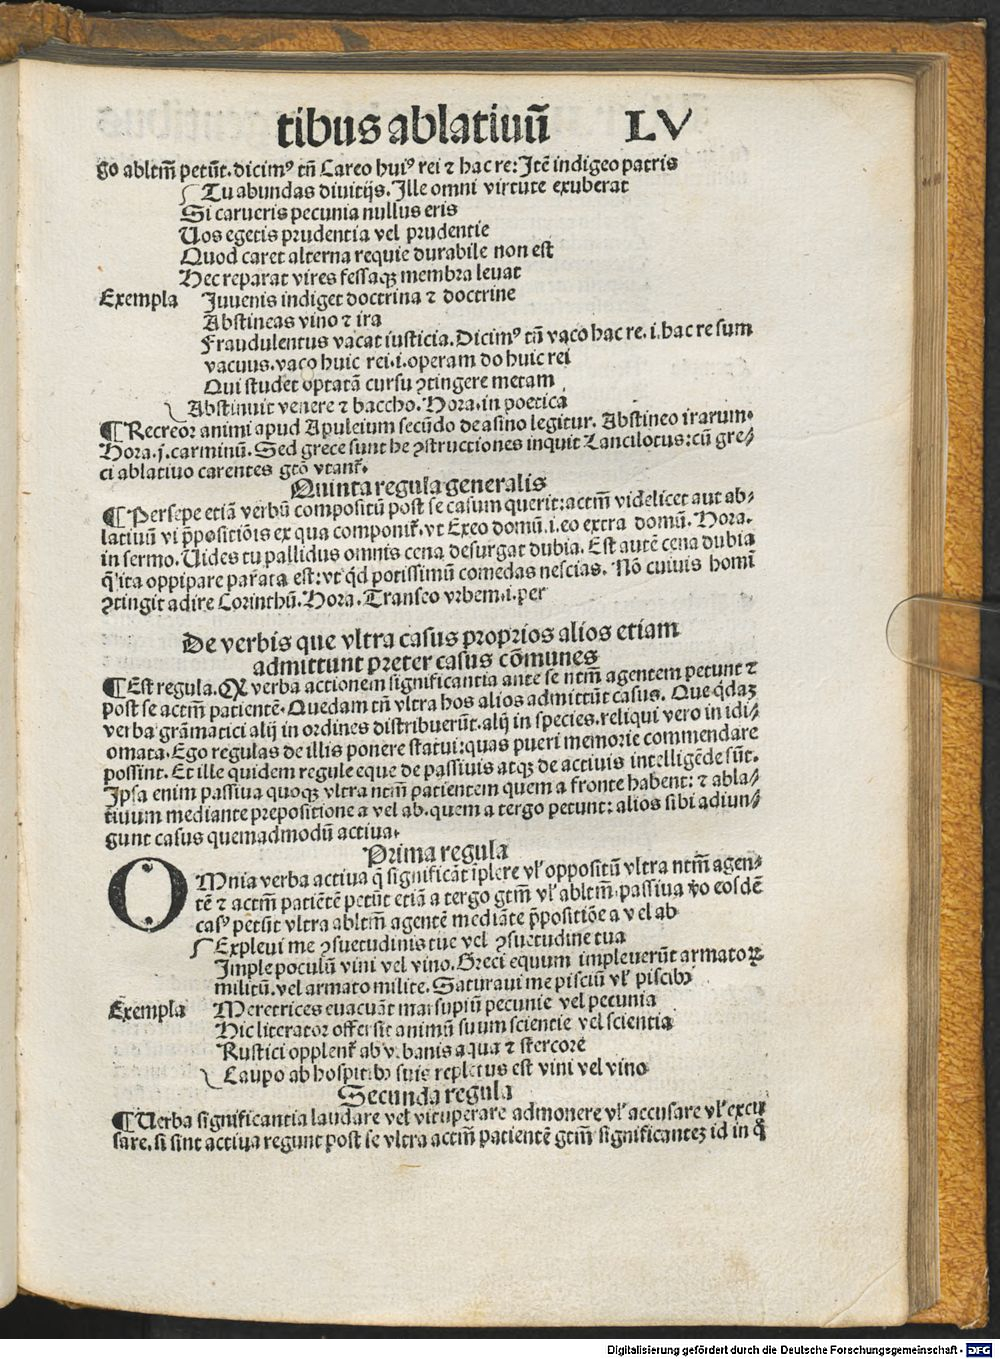 tibus ablatiuũ LV
go abltm̃ petũt. dicimꝰ tñ Careo huiꝰ rei ⁊ hac re: Itẽ indigeo patris
Tu abundas diuitijs. Ille omni virtute exuberat
Si carueris pecunia nullus eris
Uos egetis prudentia vel prudentie
Quod caret alterna requie durabile non est
Hec reparat vires fessaqꝫ membra leuat
Exempla Iuuenis indiget doctrina ⁊ doctrine
Abstineas vino ⁊ ira
Fraudulentus vacat iusticia. Dicimꝰ tñ vaco hac re. i. hac re sum
vacuus. vaco huic rei. i. operam do huic rei
Qui studet optatã cursu ꝯtingere metam
Abstinuit venere ⁊ baccho. Hora. in poetica
¶ Recreor animi apud Apuleium secũdo de asino legitur. Abstineo irarum.
Hora. j. carminũ. Sed grece sunt he ꝯstructiones inquit Lancilotus: cũ gre⸗
ci ablatiuo carentes gtõ vtant᷑.
Quinta regula generalis
¶ Persepe etiã verbũ compositũ post se casum querit: actm̃ videlicet aut ab⸗
latiuũ vi p̃positiõis ex qua componit᷑. vt Exeo domũ. i. eo extra domũ. Hora.
in sermo. Uides tu pallidus omnis cena desurgat dubia. Est autẽ cena dubia
q̃ ita oppipare parata est: vt qd̓ potissimũ comedas nescias. Nõ cuiuis homĩ
ꝯtingit adire Corinthũ. Hora. Transeo vrbem. i. per
De verbis que vltra casus proprios alios etiam
admittunt preter casus cõmunes
¶ Est regula. Qꝫ verba actionem significantia ante se ntm̃ agentem petunt ⁊
post se actm̃ patientẽ. Quedam tñ vltra hos alios admittũt casus. Que qd̓aꝫ
verba grãmatici alij in ordines distribuerũt. alij in species. reliqui vero in idi⸗
omata. Ego regulas de illis ponere statui: quas pueri memorie commendare
possint. Et ille quidem regule eque de passiuis atqꝫ de actiuis intelligẽde sũt.
Ipsa enim passiua quoqꝫ vltra ntm̃ patientem quem a fronte habent: ⁊ abla⸗
tiuum mediante prepositione a vel ab. quem a tergo petunt: alios sibi adiun⸗
gunt casus quemadmodũ actiua.
Prima regula
OMnia verba actiua q̃ significãt ĩplere vl̓ oppositũ vltra ntm̃ agen⸗
tẽ ⁊ actm̃ patiẽtẽ petũt etiã a tergo gtm̃ vl̓ abltm̃. passiua ṽo eosdẽ
casꝰ petũt vltra abltm̃ agentẽ mediãte p̃positiõe a vel ab
Expleui me ꝯsuetudinis tue vel ꝯsuetudine tua
Imple poculũ vini vel vino. Greci equum impleuerũt armatoꝝ
militũ. vel armato milite. Saturaui me pisciũ vl̓ piscibꝫ
Exempla Meretrices euacuãt marsupiũ pecunie vel pecunia
Hic literator offersit animũ suum scientie vel scientia
Rustici opplent᷑ ab vrbanis aqua ⁊ stercore
Caupo ab hospitibꝫ suis repletus est vini vel vino
Secunda regula
¶ Uerba significantia laudare vel vituperare admonere vl̓ accusare vl̓ excu
sare. si sint actiua regunt post se vltra actm̃ patientẽ gtm̃ significanteꝫ id in q̊
Digitalisierung gefördert durch die Deutsche Forschungsgemeinschaft - DFG